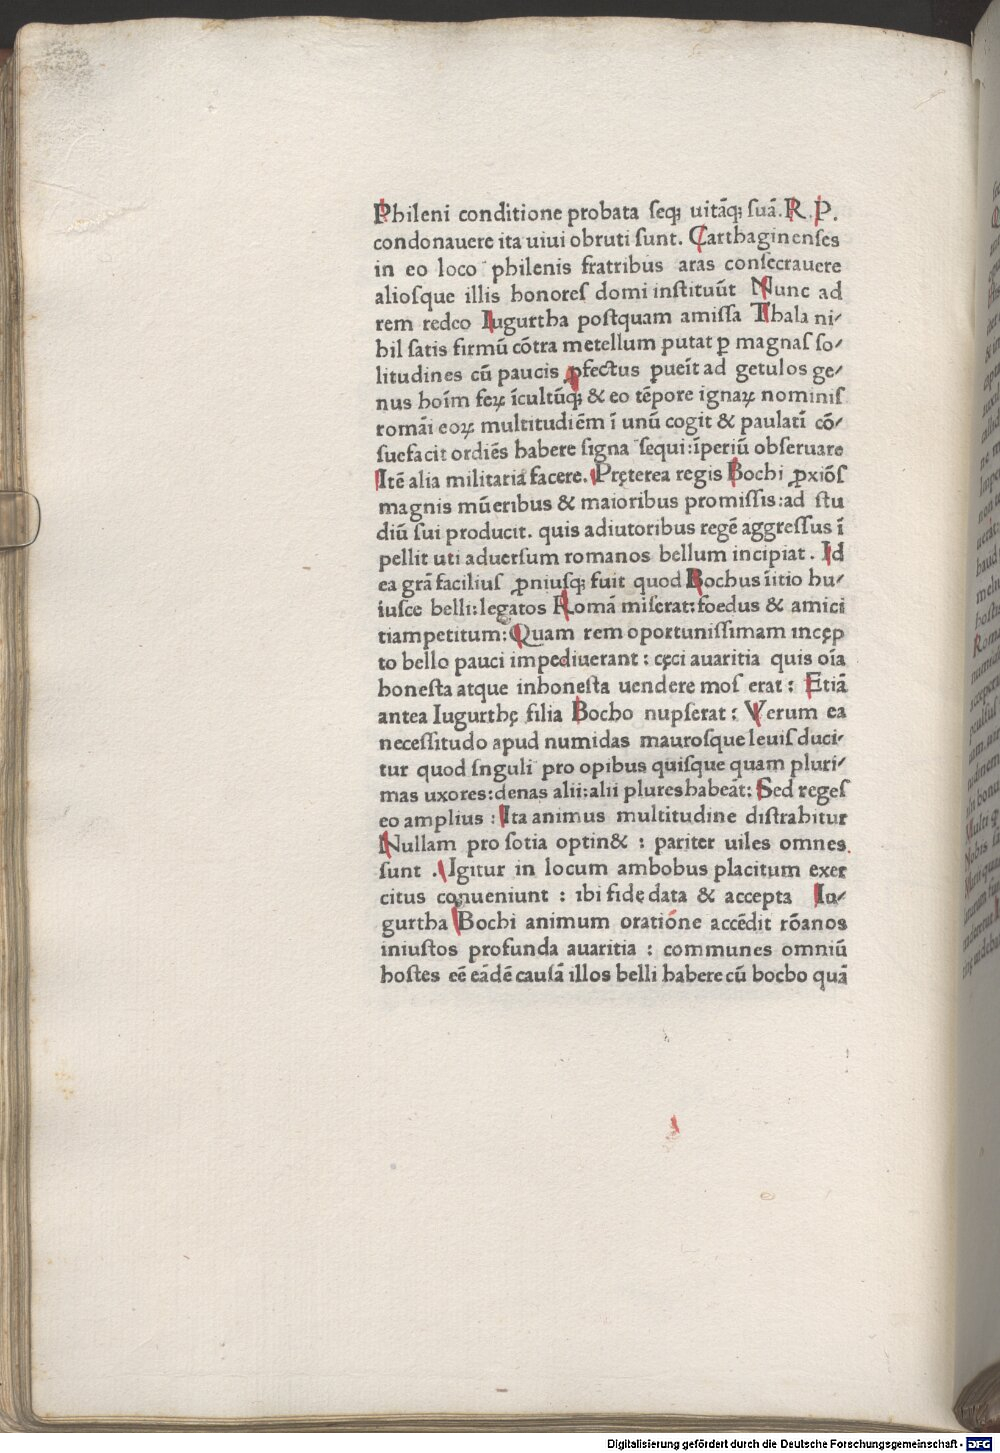 Phileni conditione probata seq; uitāq; suā. R. P.
condonauere ita uiui obruti sunt. Carthaginenses
in eo loco philenis fratribus aras consecrauere
aliosque illis honores domi instituūt Nunc ad
rem redeo Iugurtha postquam amissa Thala ni⸗
hil satis firmū cōtra metellum putat ꝑ magnas so⸗
litudines cū paucis ꝓfectus ꝑueīt ad getulos ge⸗
nus hoīm feꝝ īcultūq; & eo tēpore ignaꝝ nominis
romāi eoꝝ multitudiēm ī unū cogit & paulatī cō⸗
suefacit ordiēs habere signa sequi: īperiū obseruare
Itē alia militaria facere. Pręterea regis Bochi ꝓxiōs
magnis mūeribus & maioribus promissis: ad stu
diū sui producit. quis adiutoribus regē aggressus ī
pellit uti aduersum romanos bellum incipiat. Id
ea grā facilius ꝓniusq; fuit quod Bochus īitio hu⸗
iusce belli: legatos Romā miserat: foedus & amici
tiam petitum: Quam rem oportunissimam incęp
to bello pauci impediuerant: cęci auaritia quis oīa
honesta atque inhonesta uendere mos erat: Etiā
antea Iugurthę filia Bocho nupserat: Verum ea
necessitudo apud numidas maurosque leuis duci⸗
tur quod snguli pro opibus quisque quam pluri⸗
mas uxores: denas alii: alii plures habeāt: Sed reges
eo amplius: Ita animus multitudine distrahitur
Nullam pro sotia optin&: pariter uiles omnes
sunt. Igitur in locum ambobus placitum exer
citus conueniunt: ibi fidę data & accepta Iu⸗
gurtha Bochi animum oratiōne accēdit rōanos
iniustos profunda auaritia: communes omniū
hostes eē eādē causā illos belli habere cū bocho quā
Digitalisierung gefördert durch die Deutsche Forschungsgemeinschaft - DFG